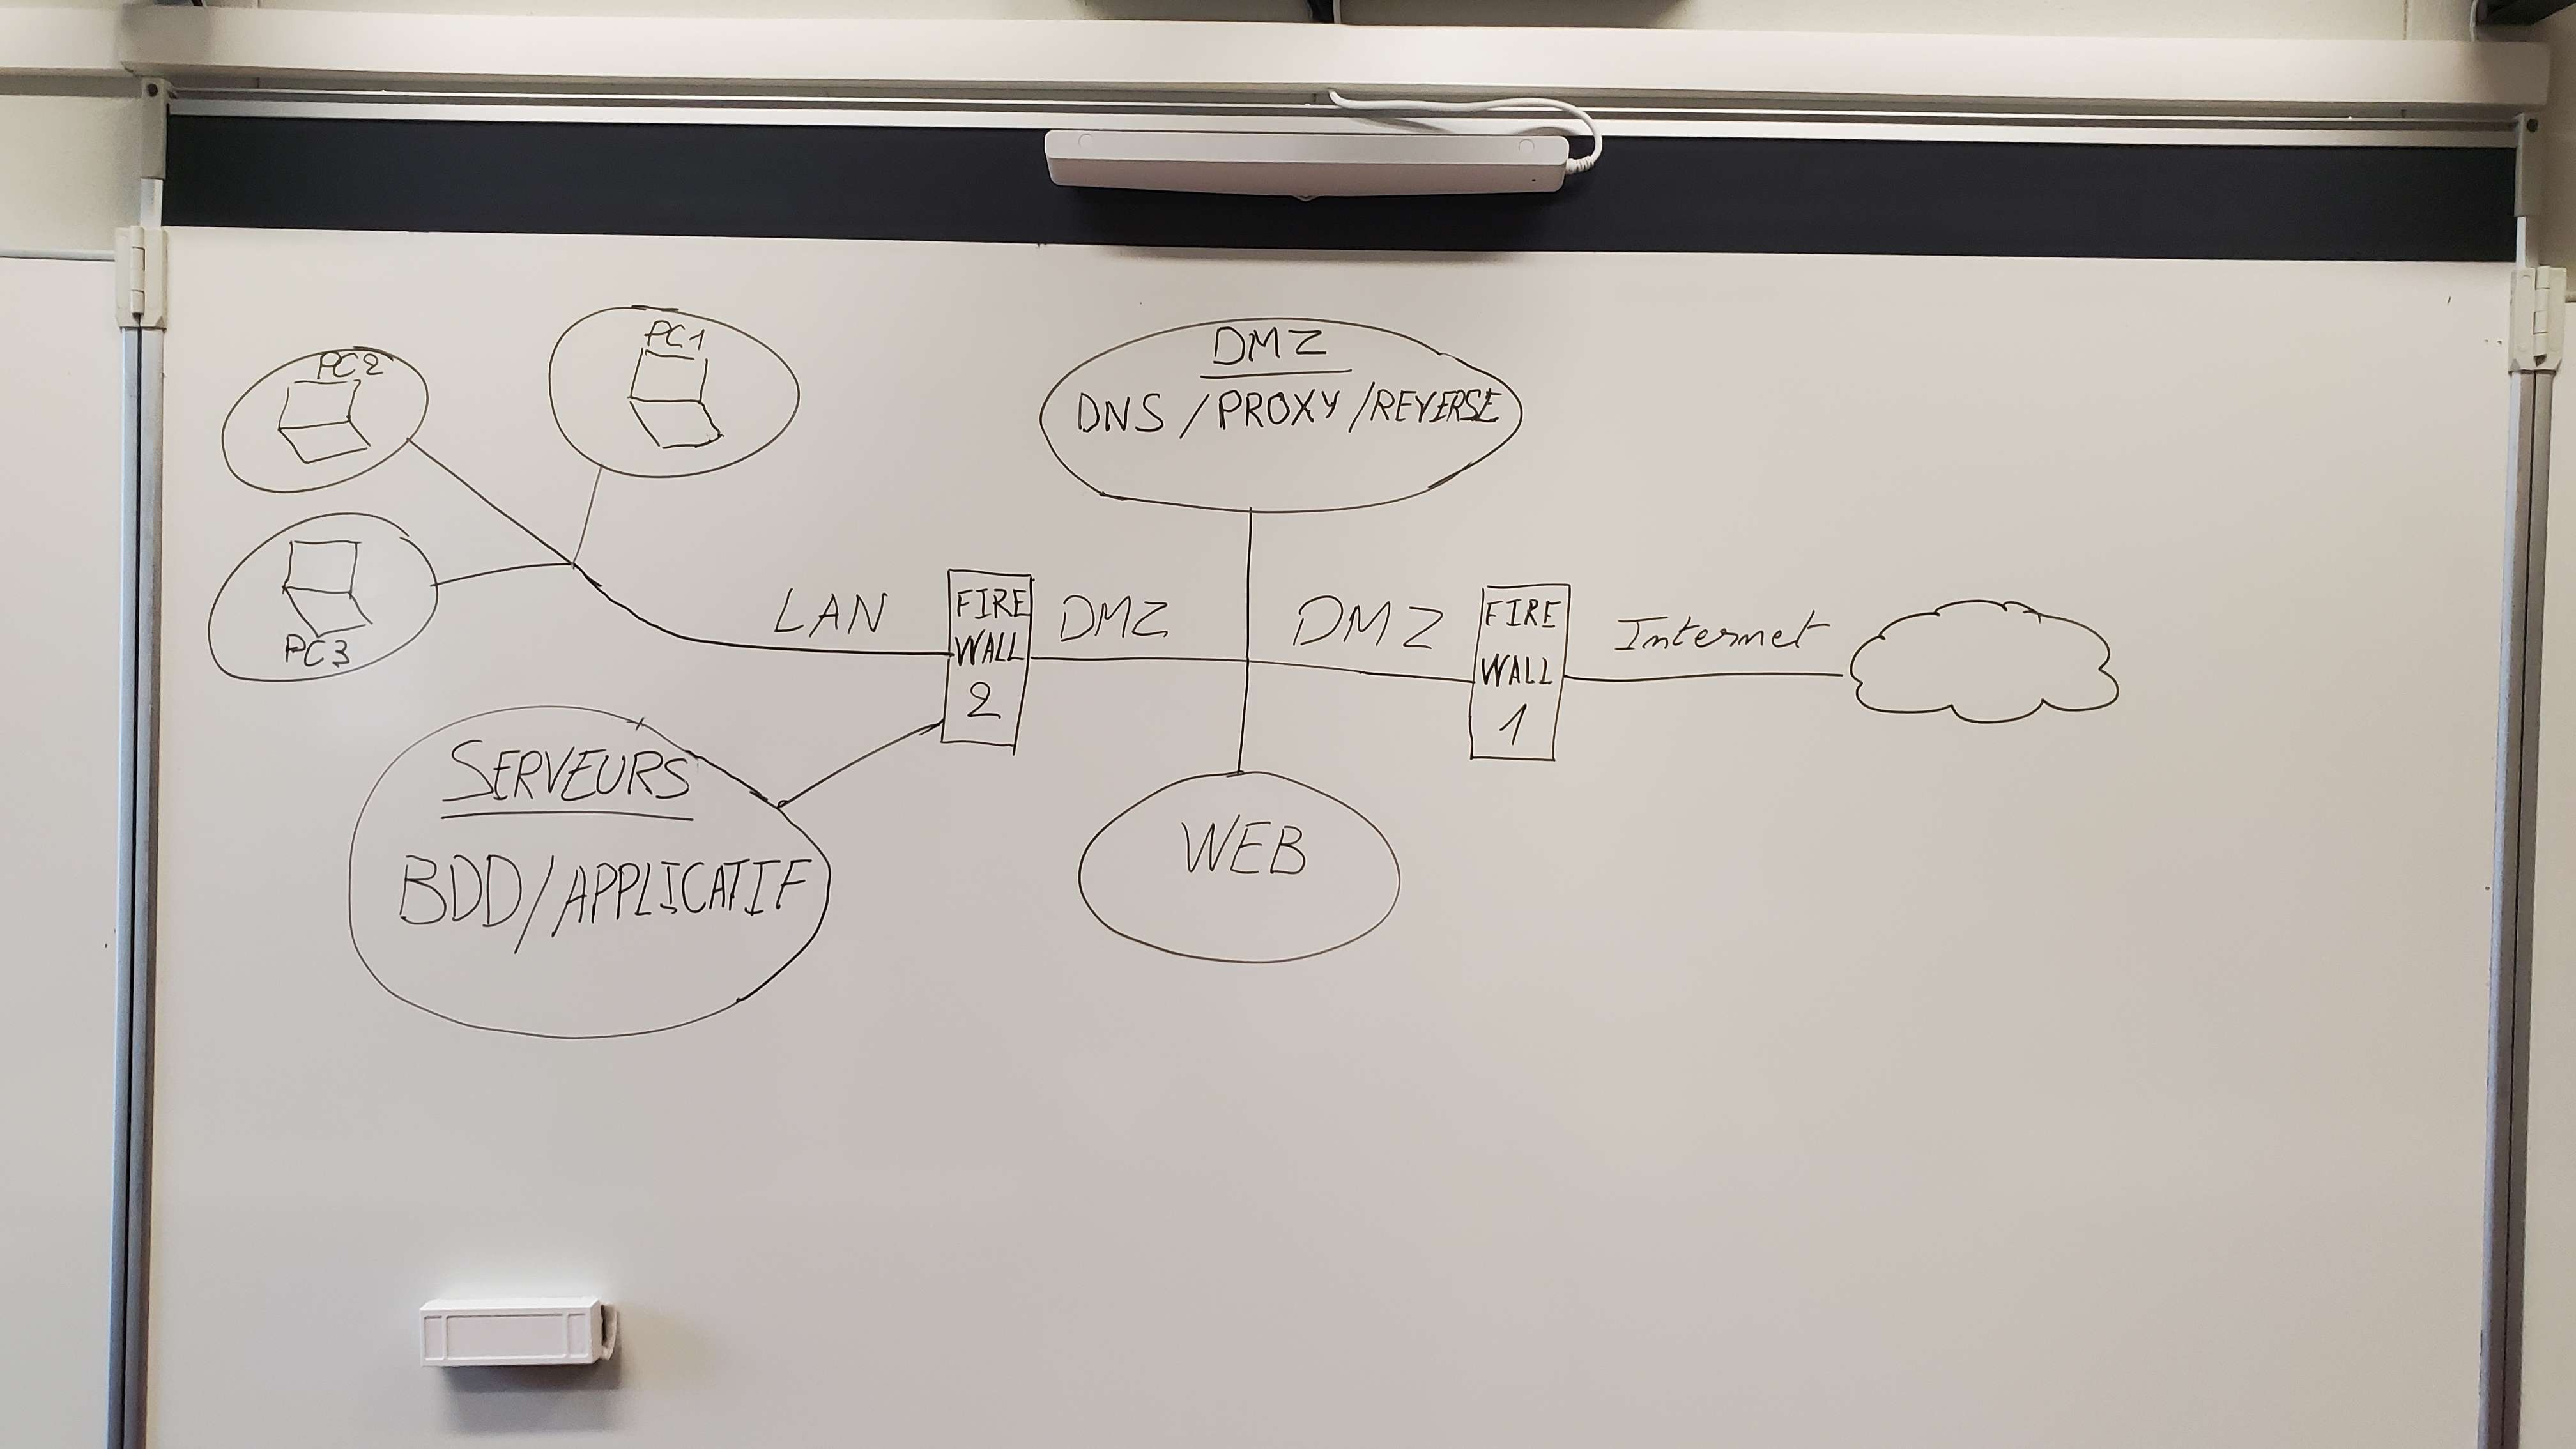 PC2
PC1
PC3
DMZ
DNS / PROXY / REVERSE
LAN
FIRE
WALL
2
DMZ
DMZ
FIRE
WALL
1
Internet
SERVEURS
BDD / APPLICATIF
WEB